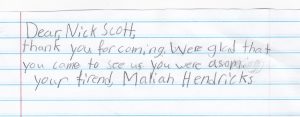 Dear, Nick Scott,
thank you for coming. Were glad that
you came to see us you were asom.
your firend, Maliah Hendricks